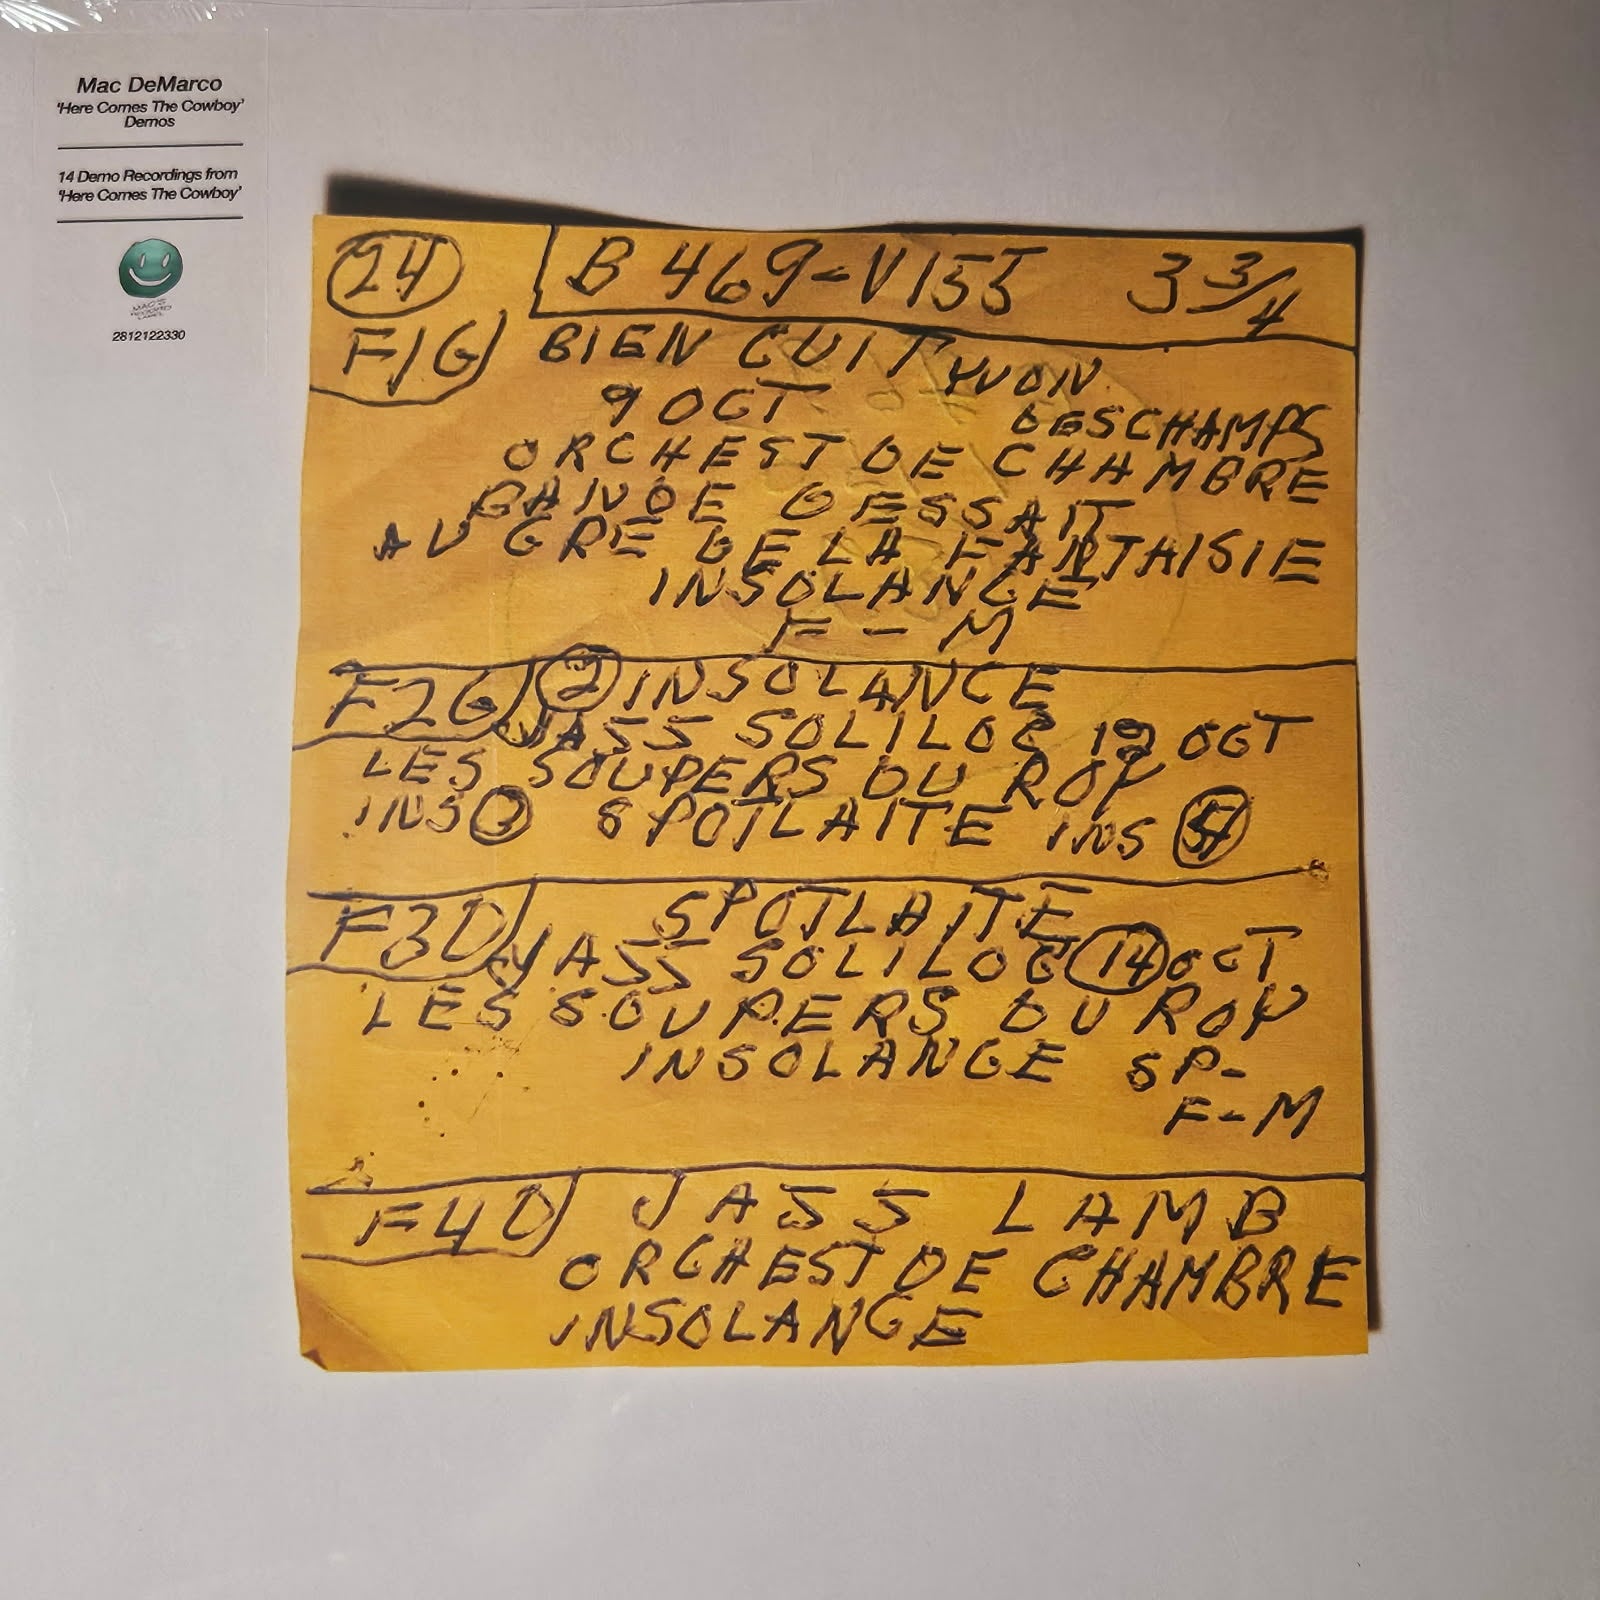 Mac DeMarco
'Here Comes The Cowboy'
Demos
14 Demo Recordings from
'Here Comes The Cowboy'
MAC'S
RECORD
LABEL
2812122330
24 B 469-V155 3 3/4
F1G BIEN CUIT YVON
9 OCT DESCHAMPS
ORCHEST DE CHAMBRE
BANDE DESSAIT
AU GRE DE LA FANTAISIE
INSOLANGE
F-M
F2G 2 INSOLANCE
JASS SOLILOC 12 OCT
LES SOUPERS DU ROY
INS 3 SPOTLAITE INS
F3D SPOTLAITE
JASS SOLILOC 14 OCT
LES SOUPERS DU ROY
INSOLANGE SP-
F-M
F4D JASS LAMB
ORCHEST DE CHAMBRE
INSOLANGE